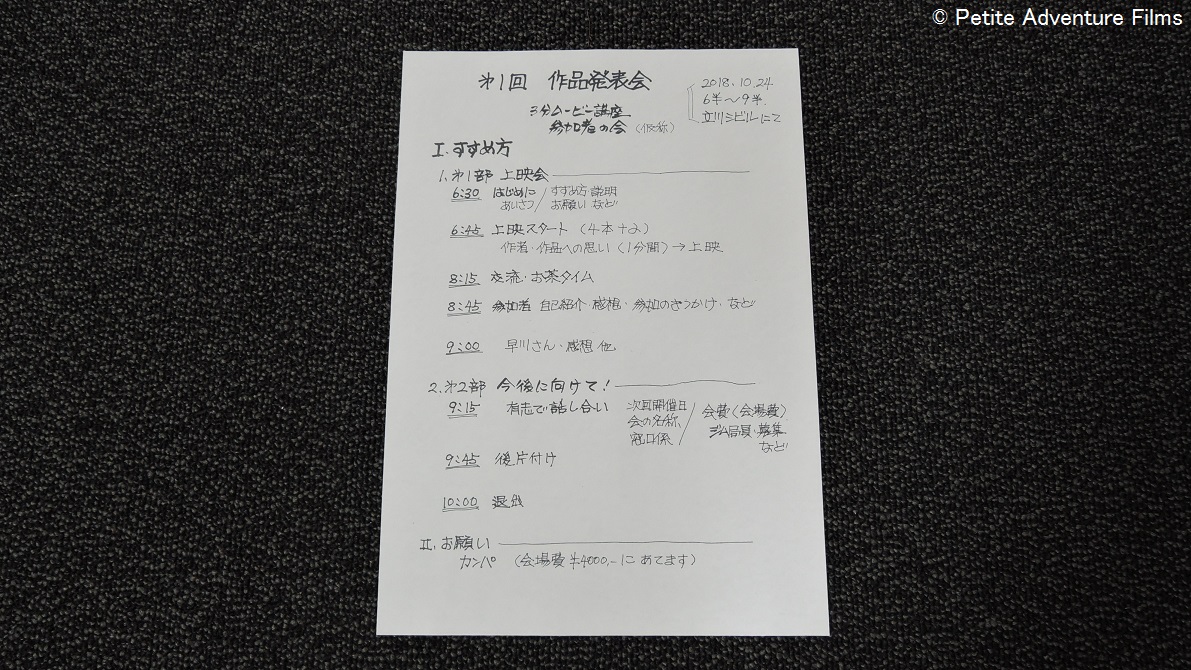 © Petite Adventure Films
第1回 作品発表会
2018.10.24
6半〜9半.
立川シビルにて
3分ムービー講座
参加者の会(仮称)
I. すすめ方
1. 第1部 上映会
6:30 はじめに/すすめ方 説明
あいさつ/お願い など
6:45 上映スタート (4本+α)
作者・作品への思い(1分間)→上映
8:15 交流・お茶タイム
8:45 参加者 自己紹介・感想・参加のきっかけ・など
9:00 早川さん・感想 他
2. 第2部 今後に向けて!
9:15 有志で話し合い
次回開催日
会の名称
窓口係
会費(会場費)
ジム局員・募集
など
9:45 後片付け
10:00 退出
II. お願い
カンパ (会場費¥4000.-にあてます)